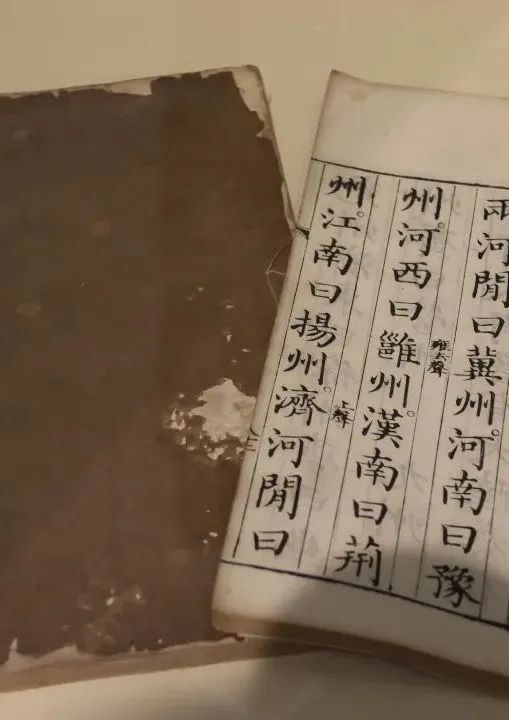 兩河閒曰冀州。河南曰豫
州。河西曰雝州。漢南曰荊
雍去聲
州。江南曰揚州。濟河閒曰
上聲